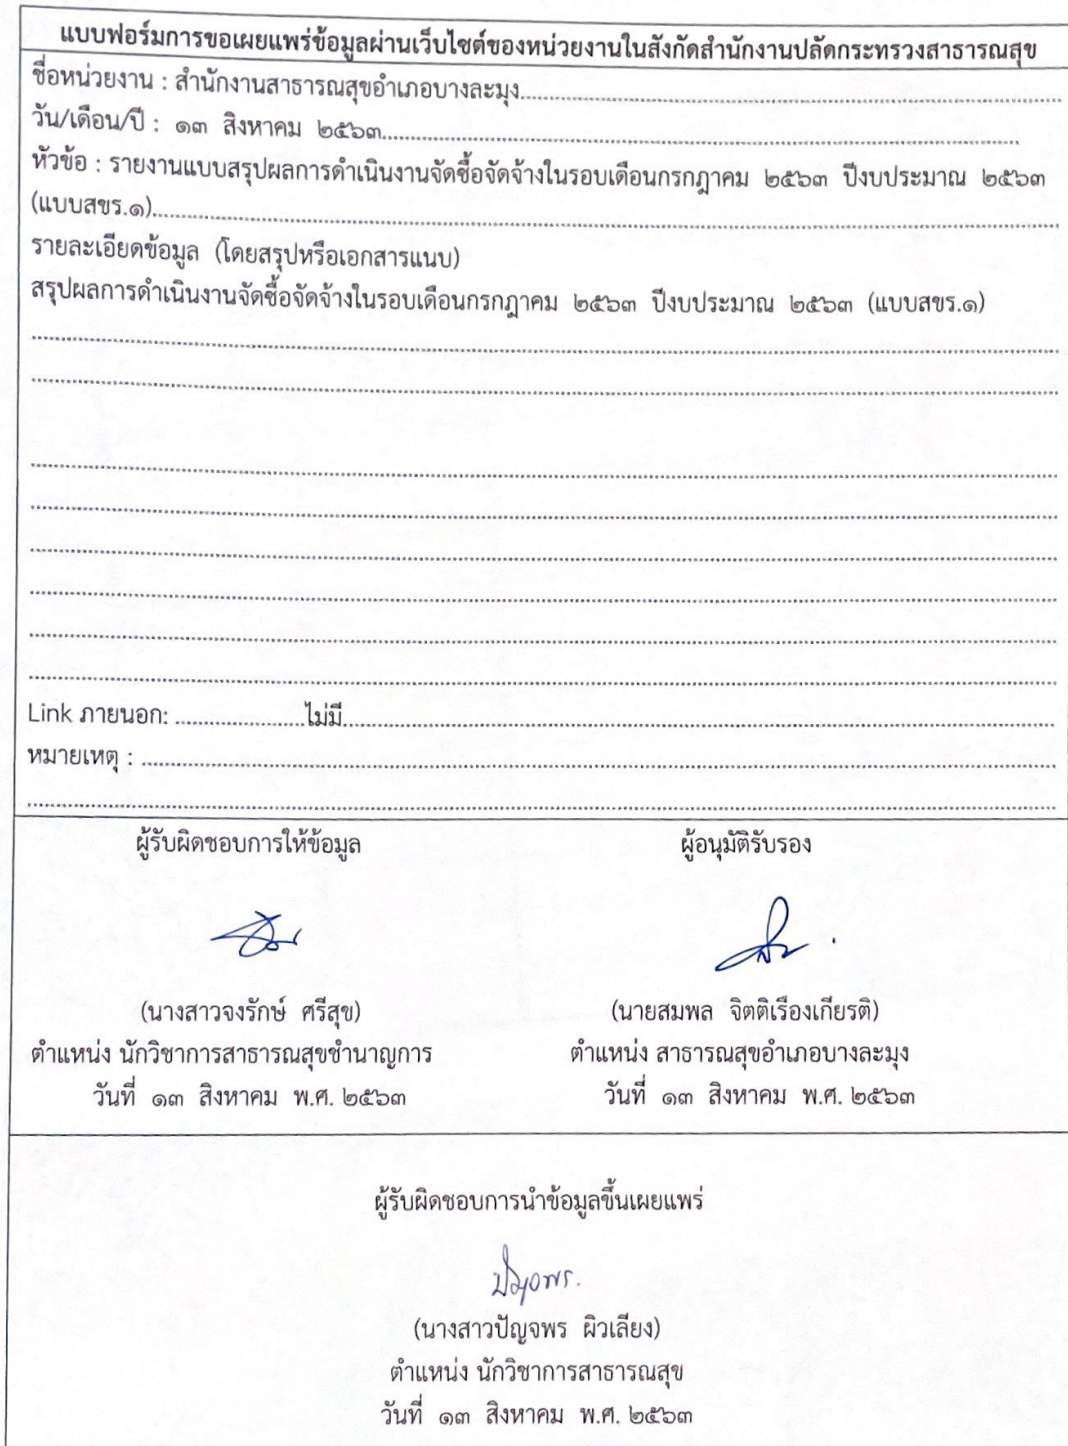 แบบฟอร์มการขอเผยแพร่ข้อมูลผ่านเว็บไซต์ของหน่วยงานในสังกัดสำนักงานปลัดกระทรวงสาธารณสุข
ชื่อหน่วยงาน : สำนักงานสาธารณสุขอำเภอบางละมุง
วัน/เดือน/ปี : ๑๓ สิงหาคม ๒๕๖๓
หัวข้อ : รายงานแบบสรุปผลการดำเนินงานจัดซื้อจัดจ้างในรอบเดือนกรกฎาคม ๒๕๖๓ ปีงบประมาณ ๒๕๖๓
(แบบสขร.๑)
รายละเอียดข้อมูล (โดยสรุปหรือเอกสารแนบ)
สรุปผลการดำเนินงานจัดซื้อจัดจ้างในรอบเดือนกรกฎาคม ๒๕๖๓ ปีงบประมาณ ๒๕๖๓ (แบบสขร.๑)
Link ภายนอก: ไม่มี
หมายเหตุ :
ผู้รับผิดชอบการให้ข้อมูล ผู้อนุมัติรับรอง
(นางสาวจงรักษ์ ศรีสุข) (นายสมพล จิตติเรืองเกียรติ)
ตำแหน่ง นักวิชาการสาธารณสุขชำนาญการ ตำแหน่ง สาธารณสุขอำเภอบางละมุง
วันที่ ๑๓ สิงหาคม พ.ศ. ๒๕๖๓ วันที่ ๑๓ สิงหาคม พ.ศ. ๒๕๖๓
ผู้รับผิดชอบการนำข้อมูลขึ้นเผยแพร่
(นางสาวปัญจพร ผิวเลียง)
ตำแหน่ง นักวิชาการสาธารณสุข
วันที่ ๑๓ สิงหาคม พ.ศ. ๒๕๖๓